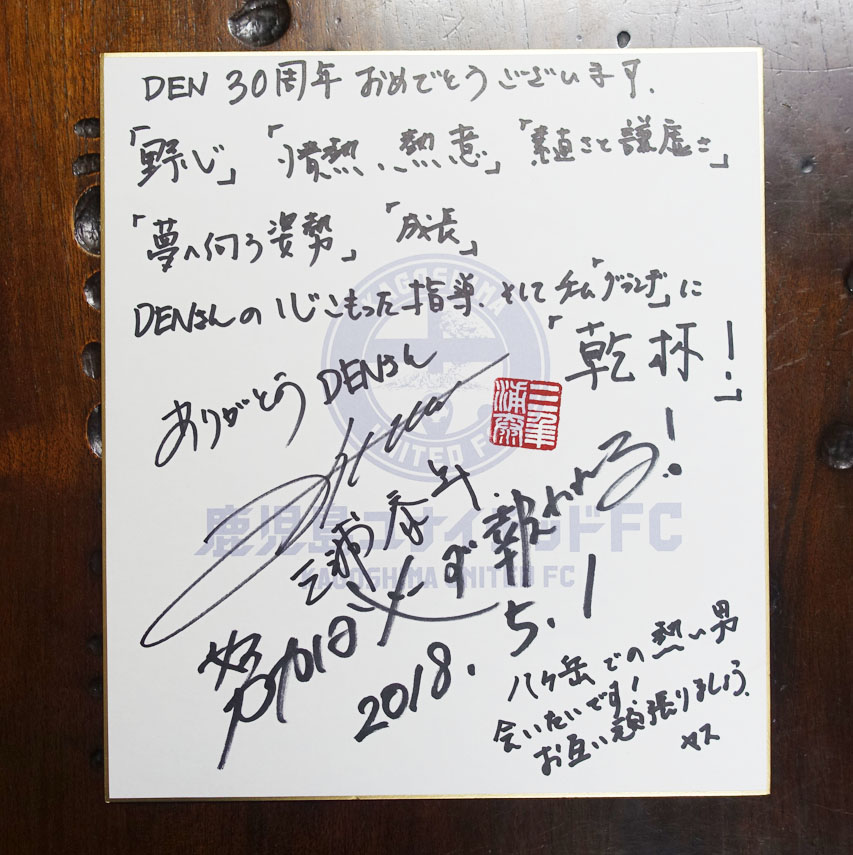 DEN 30周年 おめでとうございます.
「野心」「情熱、熱意」「素直さと謙虚さ」
「夢へ向う姿勢」「成長」
DENさんの 心こもった指導. そして チーム「グランデ」に
「乾杯!」
ありがとう DENさん
三浦泰年
三浦泰年
努力は必ず報われる!
2018. 5. 1
八ヶ岳での熱い男
会いたいです!
お互い頑張りましょう.
ヤス
KAGOSHIMA
UNITED FC
鹿児島ユナイテッドFC
KAGOSHIMA UNITED FC